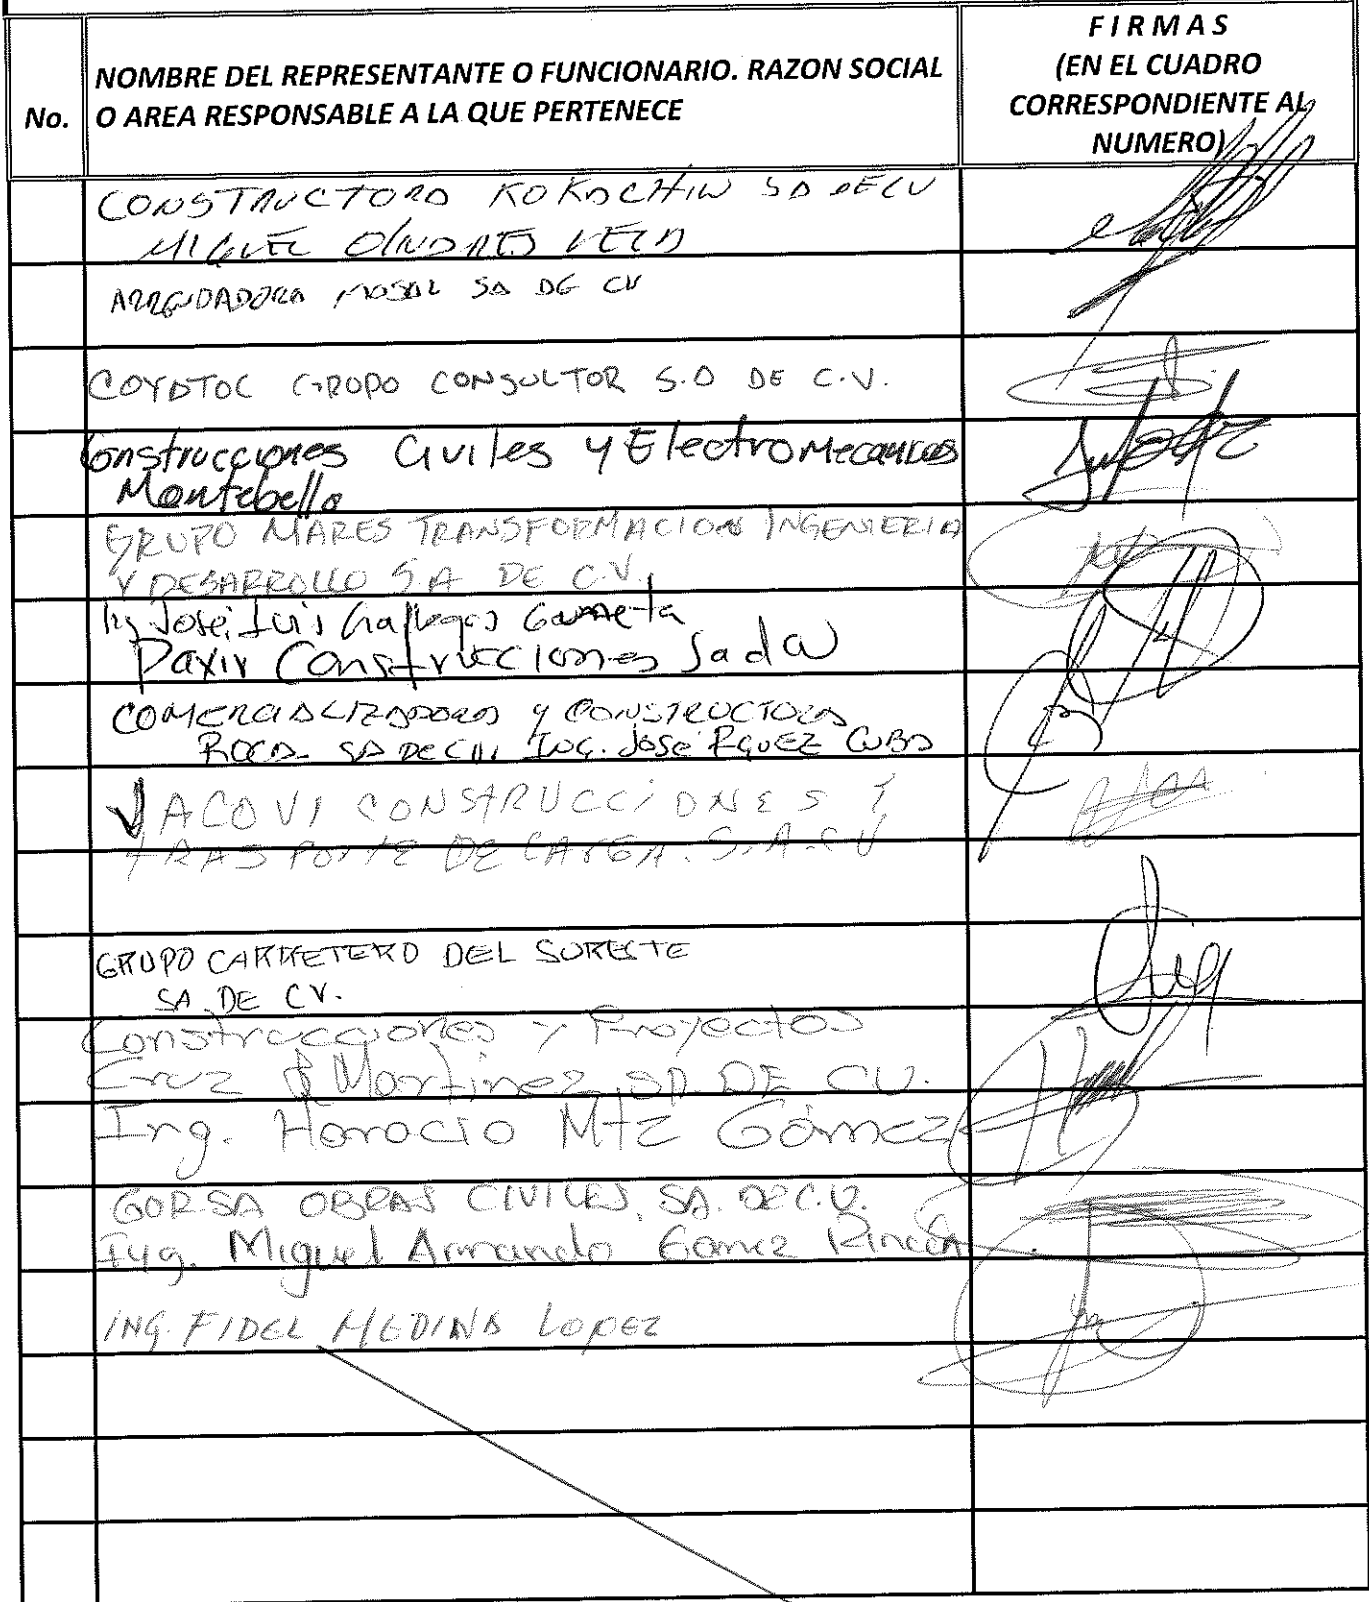 No.
NOMBRE DEL REPRESENTANTE O FUNCIONARIO. RAZON SOCIAL
O AREA RESPONSABLE A LA QUE PERTENECE
FIRMAS
(EN EL CUADRO
CORRESPONDIENTE AL
NUMERO)
CONSTRUCTORA KOKOCHIN SA DE CV
MIGUEL OLIVARES VERA
ARRENDADORA MOSAL SA DE CV
COYATOC GRUPO CONSULTOR S.A DE C.V.
Construcciones Civiles y Electromecanicas
Montebello
GRUPO MARES TRANSFORMACION INGENIERIA
Y DESARROLLO S.A DE C.V.
Ing José Luis Gallegos
Daxir Construcciones Sadcv
COMERCIALIZADORA Y CONSTRUCTORA
ROCA SA DE CV. ING. JOSE RGUEZ CUBA
JACOVI CONSTRUCCIONES Y
TRASPORTE DE CARGA. S.A.CV
GRUPO CARRETERO DEL SURESTE
SA DE CV.
Construcciones y Proyectos
Cruz & Martinez SA DE CV.
Ing. Horacio Mtz Gómez
GORSA OBRAS CIVILES SA. DE C.V.
Ing. Miguel Armando Gomez Rincón
ING. FIDEL MEDINA LOPEZ